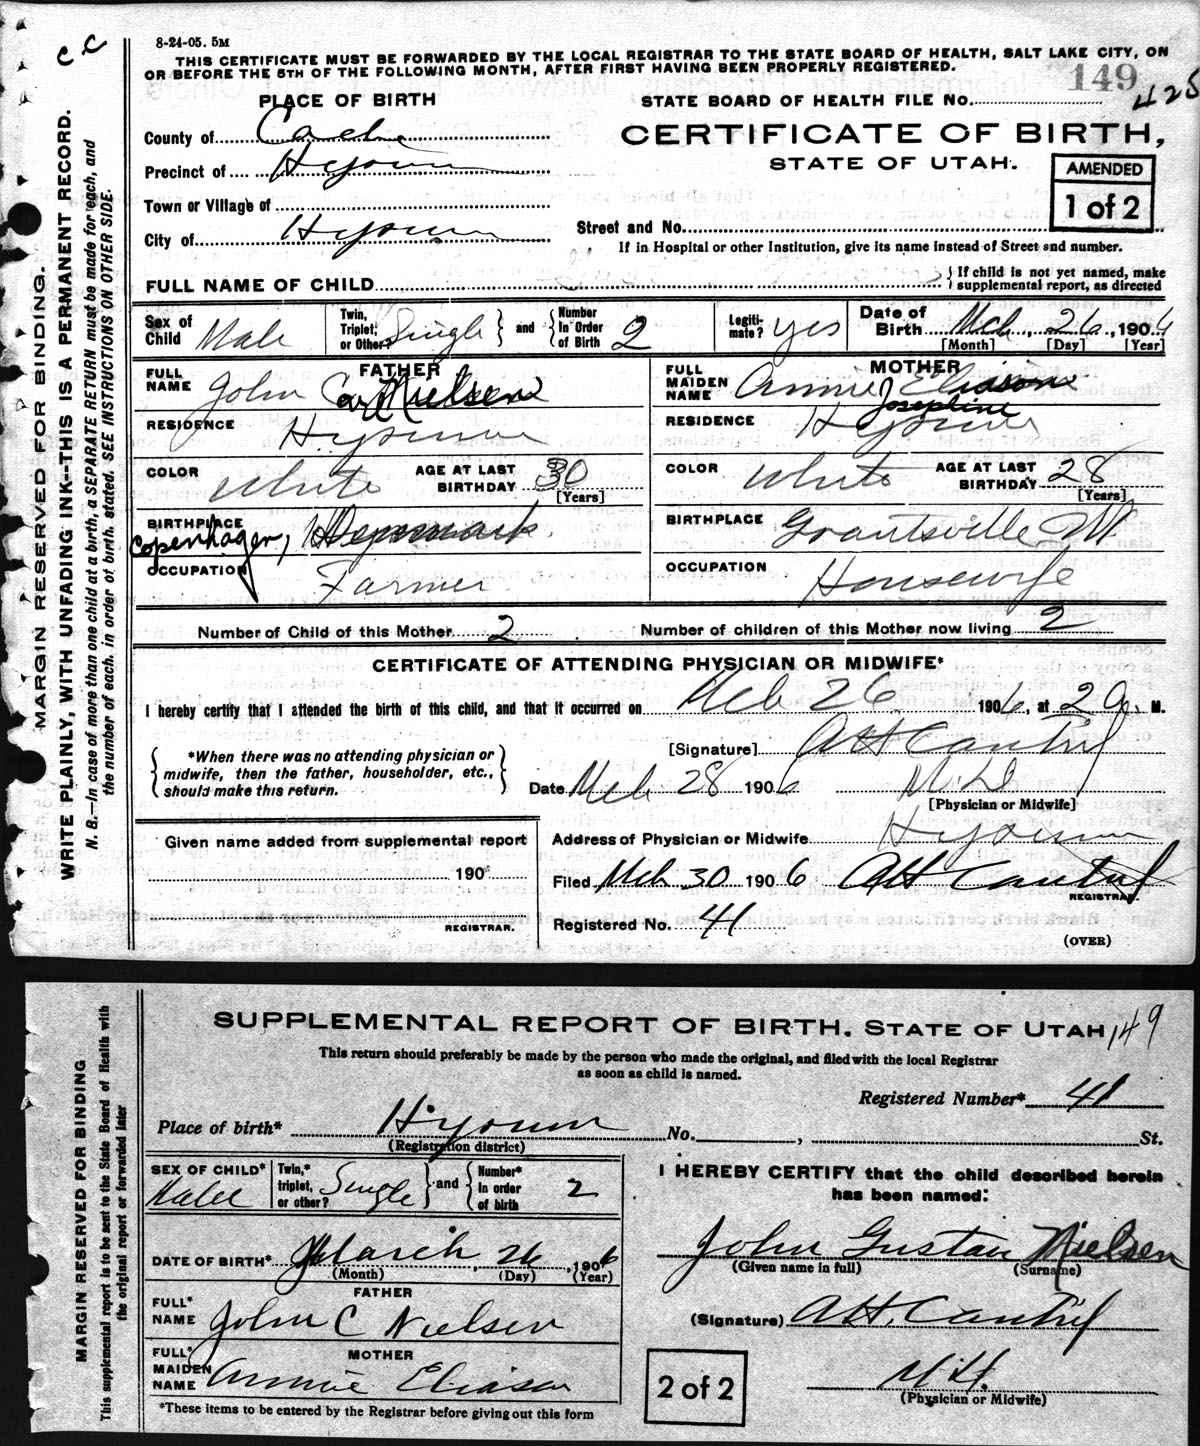 8-24-05. 5M
C C
THIS CERTIFICATE MUST BE FORWARDED BY THE LOCAL REGISTRAR TO THE STATE BOARD OF HEALTH, SALT LAKE CITY, ON
OR BEFORE THE 5TH OF THE FOLLOWING MONTH, AFTER FIRST HAVING BEEN PROPERLY REGISTERED.
149
425
PLACE OF BIRTH
STATE BOARD OF HEALTH FILE No.
County of Cache
CERTIFICATE OF BIRTH,
Precinct of Hyrum
STATE OF UTAH.
AMENDED
1 of 2
Town or Village of
Street and No.
City of Hyrum
If in Hospital or other Institution, give its name instead of Street and number.
FULL NAME OF CHILD
If child is not yet named, make
supplemental report, as directed
Sex of Child Male
Twin, Triplet, or Other? Single and Number In Order of Birth 2
Legiti-mate? yes
Date of Birth Mch, 26, 1906
[Month] [Day] [Year]
FATHER
FULL NAME John Carl Nielsen
MOTHER
FULL MAIDEN NAME Annie Josephine Eliason
RESIDENCE Hyrum
RESIDENCE Hyrum
COLOR White AGE AT LAST BIRTHDAY 30 [Years]
COLOR White AGE AT LAST BIRTHDAY 28 [Years]
BIRTHPLACE Copenhagen, Denmark
BIRTHPLACE Grantsville Ut
OCCUPATION Farmer
OCCUPATION Housewife
Number of Child of this Mother 2 Number of children of this Mother now living 2
CERTIFICATE OF ATTENDING PHYSICIAN OR MIDWIFE*
I hereby certify that I attended the birth of this child, and that it occurred on Mch 26 1906, at 2 a. M.
*When there was no attending physician or
midwife, then the father, householder, etc.,
should make this return.
[Signature] AH Cantril
Date Mch 28 1906 M.D.
[Physician or Midwife]
Given name added from supplemental report
190
REGISTRAR.
Address of Physician or Midwife Hyrum
Filed Mch 30 1906 AH Cantril
REGISTRAR.
Registered No. 41
(OVER)
MARGIN RESERVED FOR BINDING.
WRITE PLAINLY, WITH UNFADING INK--THIS IS A PERMANENT RECORD.
N. B.—In case of more than one child at a birth, a SEPARATE RETURN must be made for each, and
the number of each, in order of birth, stated. SEE INSTRUCTIONS ON OTHER SIDE.
SUPPLEMENTAL REPORT OF BIRTH. STATE OF UTAH 149
This return should preferably be made by the person who made the original, and filed with the local Registrar
as soon as child is named.
Registered Number* 41
Place of birth* Hyrum No. , St.
(Registration district)
SEX OF CHILD* Male
Twin,* triplet, or other? Single and Number* In order of birth 2
I HEREBY CERTIFY that the child described herein
has been named:
John Gustav Nielsen
(Given name in full) (Surname)
DATE OF BIRTH* March, 26, 1906
(Month) (Day) (Year)
FATHER
FULL* NAME John C Nielsen
(Signature) AH. Cantril
MOTHER
FULL* MAIDEN NAME Annie Eliason
2 of 2
(Physician or Midwife)
*These items to be entered by the Registrar before giving out this form
MARGIN RESERVED FOR BINDING
This supplemental report is to be sent to the State Board of Health with
the original report or forwarded later